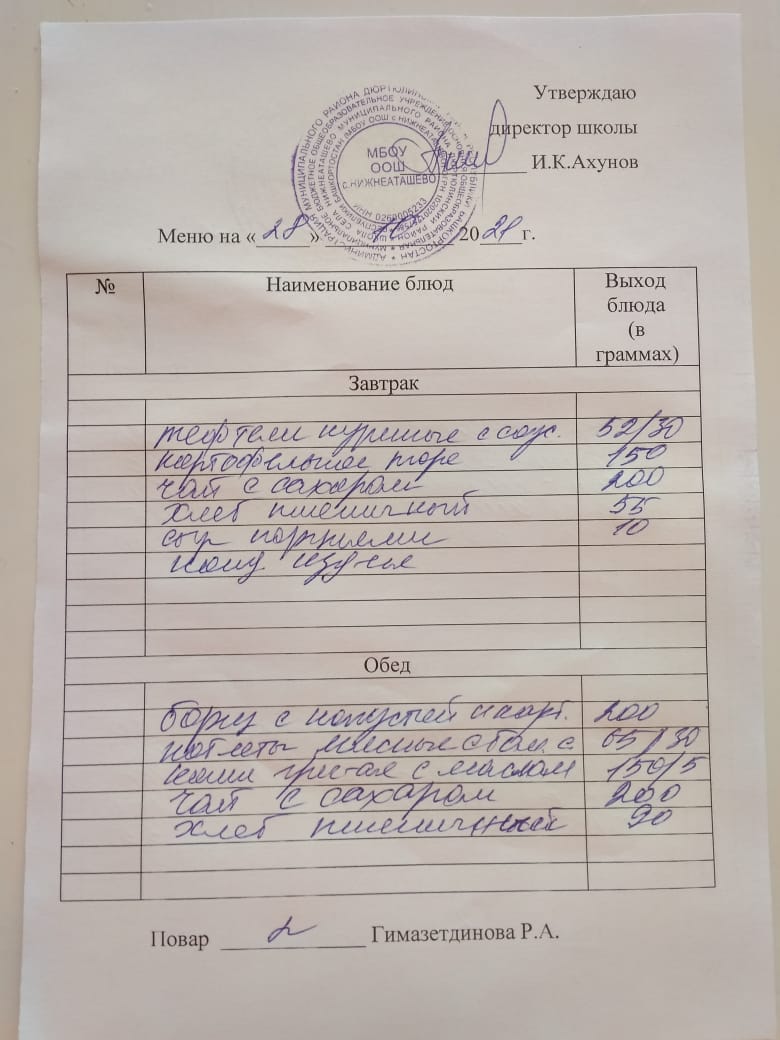 Утверждаю
директор школы
И.К.Ахунов
МБОУ
ООШ
с.НИЖНЕАТАШЕВО
ИНН 0260005233
Меню на «28» 2021г.
№ Наименование блюд Выход
блюда
(в
граммах)
Завтрак
тефтели куриные с соус. 52/30
картофельное пюре 150
чай с сахаром 200
хлеб пшеничный 55
сыр порциями 10
Обед
борщ с капустой и карт. 200
котлеты мясные 65/30
каша с маслом 150/5
чай с сахаром 200
хлеб пшеничный 90
Повар Гимазетдинова Р.А.